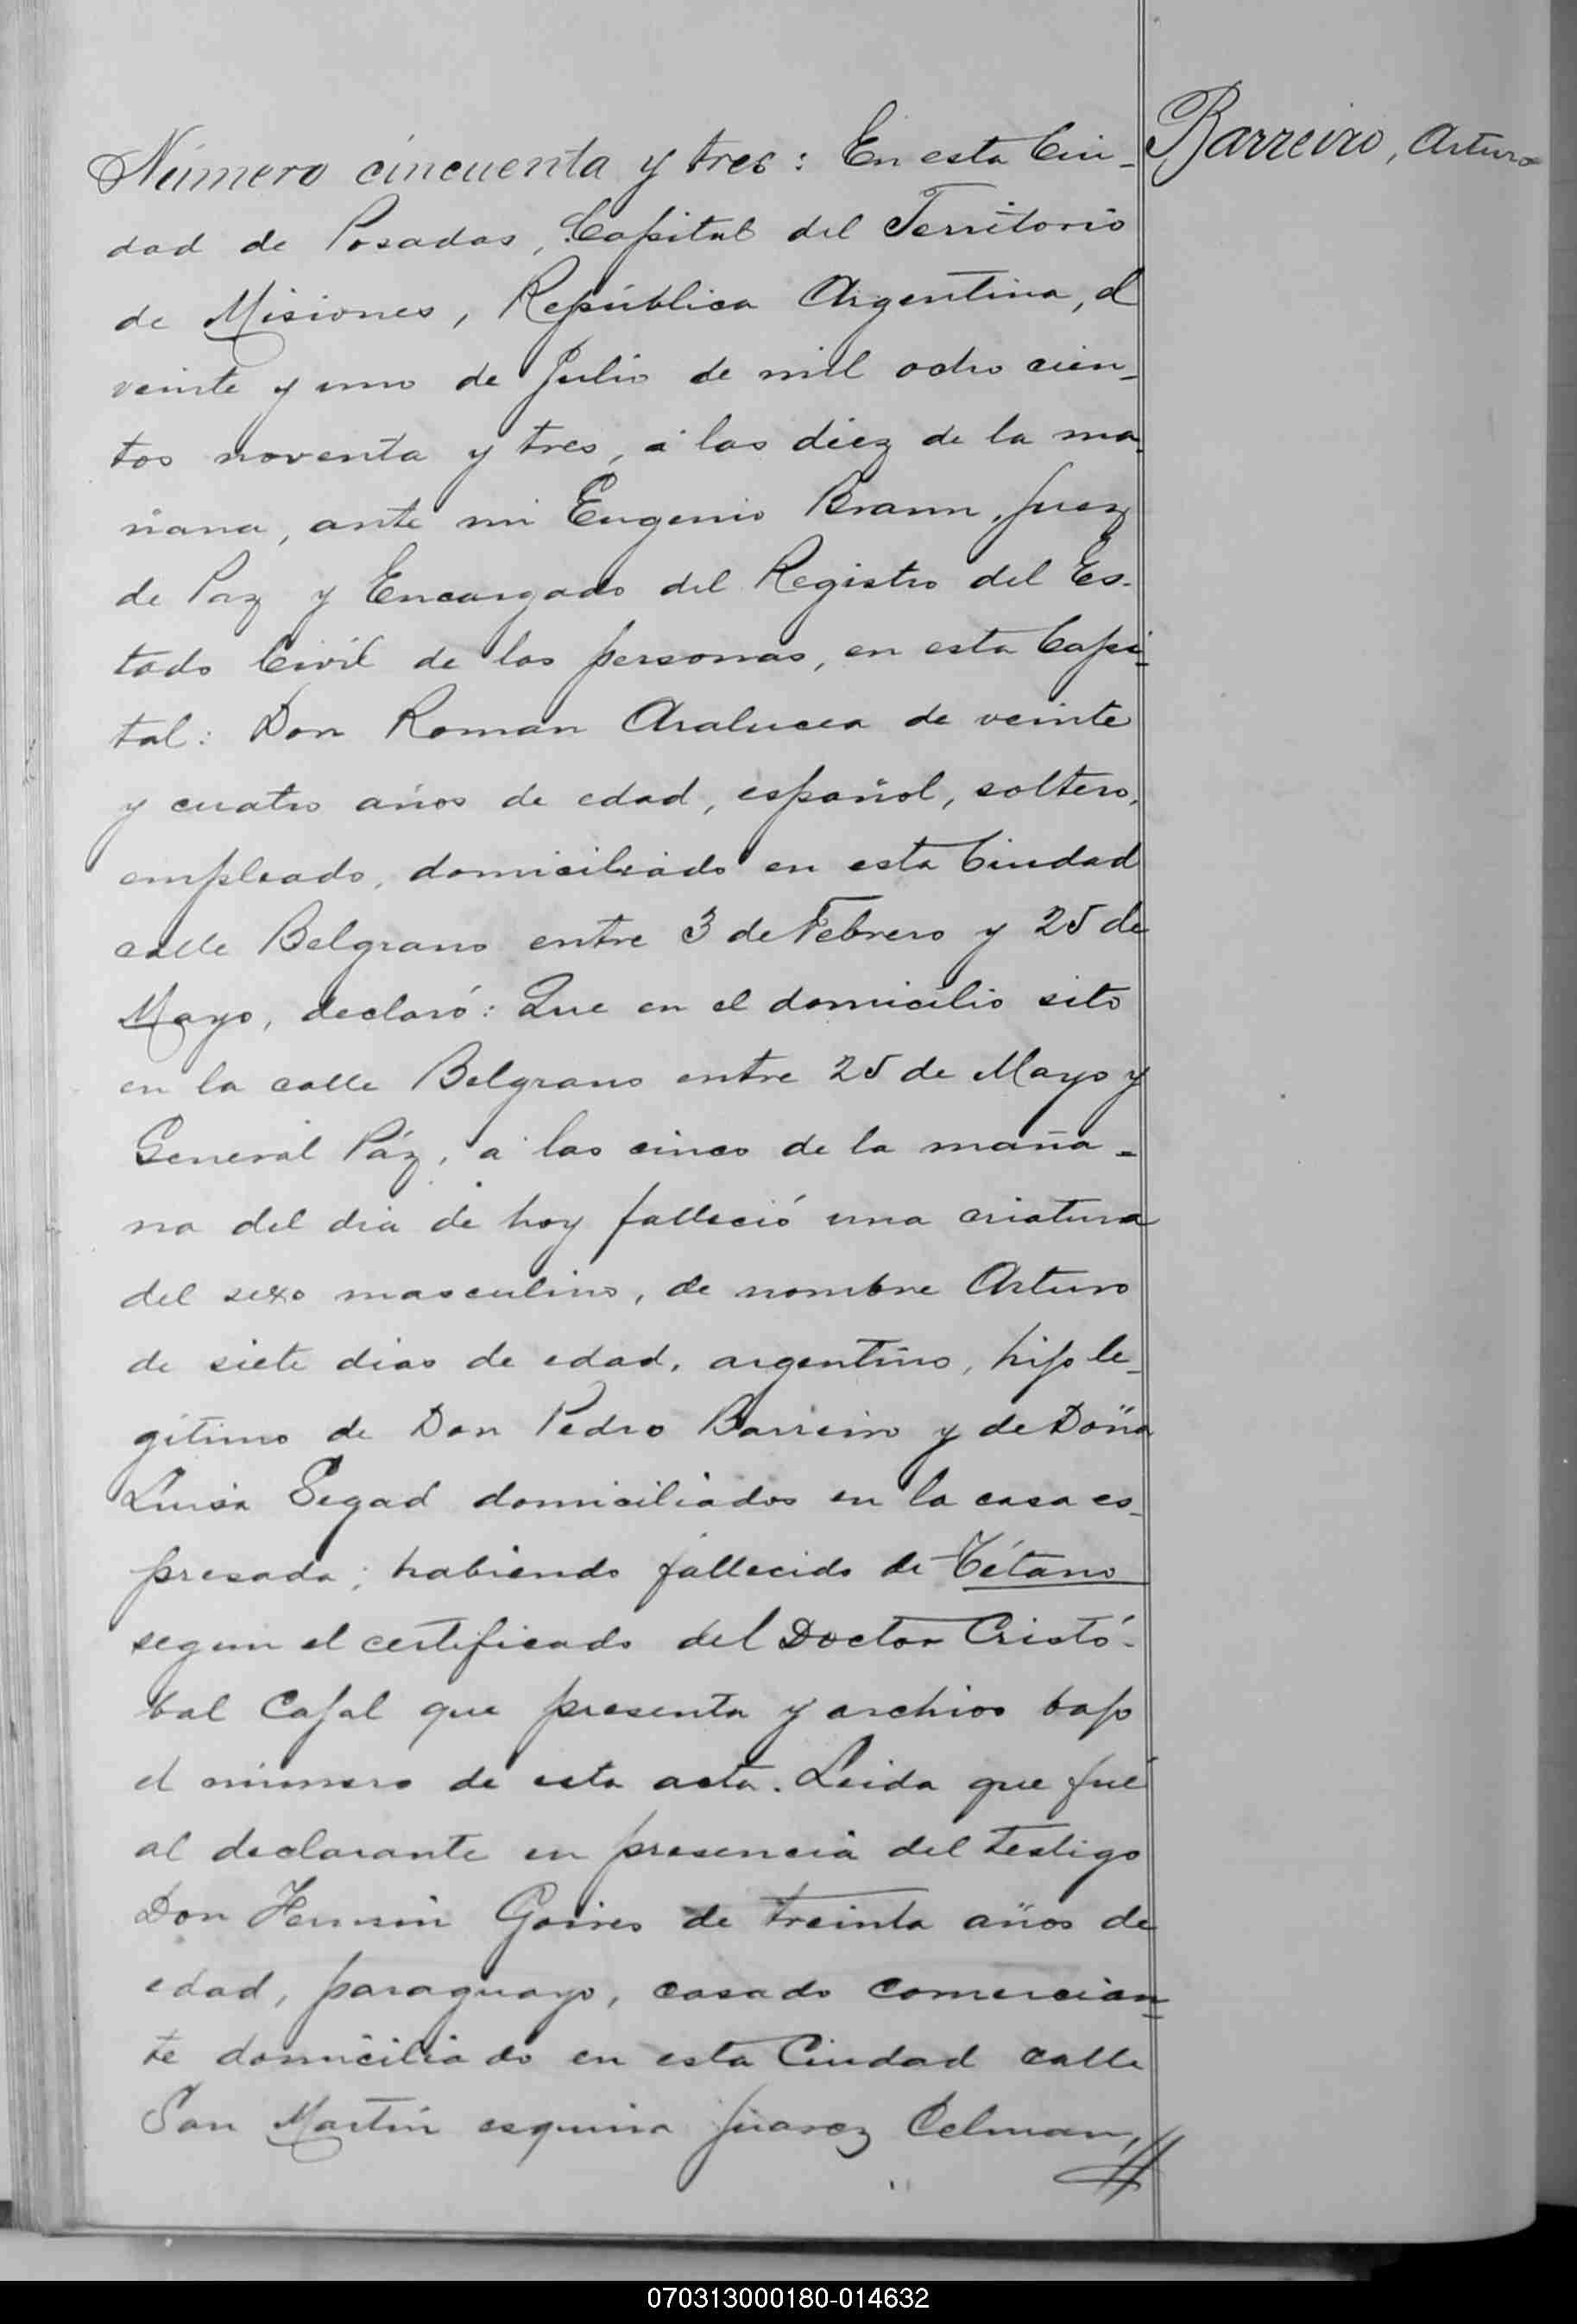 Número cincuenta y tres: En esta Ciu-
Barreiro, Arturo
dad de Posadas, Capital del Territorio
de Misiones, República Argentina, á
veinte y uno de Julio de mil ocho cien-
tos noventa y tres, á las diez de la ma-
ñana, ante mi Eugenio Braun, Juez
de Paz y Encargado del Registro del Es-
tado Civil de las personas, en esta Capi-
tal: Don Roman Aralucea de veinte
y cuatro años de edad, español, soltero,
empleado, domiciliado en esta Ciudad
calle Belgrano entre 3 de Febrero y 25 de
Mayo, declaró: Que en el domicilio sito
en la calle Belgrano entre 25 de Mayo y
General Páz, a las cinco de la maña-
na del dia de hoy falleció una criatura
del sexo masculino, de nombre Arturo
de siete dias de edad, argentino, hijo le-
gitimo de Don Pedro Barreiro y de Doña
Luisa Segad domiciliados en la casa es-
presada; habiendo fallecido de Tétano
segun el certificado del Doctor Cristó-
bal Cajal que presenta y archivo bajo
el número de esta acta. Leida que fué
al declarante en presencia del testigo
Don Goires de treinta años de
edad, paraguayo, casado comercian-
te domiciliado en esta Ciudad calle
San Martin esquina Juarez Celman,
070313000180-014632